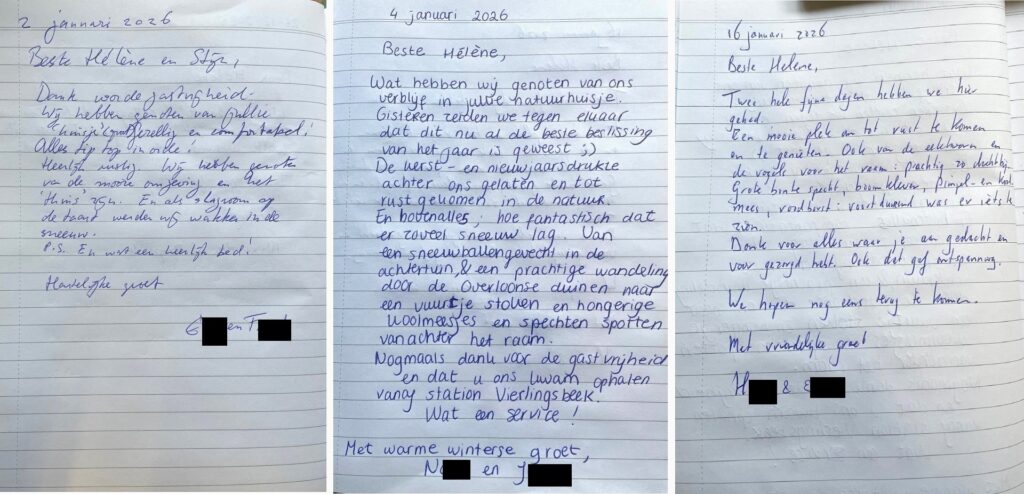 2 januari 2026
Beste Hélène en Stijn,
Dank voor de gastvrijheid.
Wij hebben genoten van jullie
huisje: gezellig en comfortabel!
Alles tip top in orde!
Heerlijk rustig. Wij hebben genoten
van de mooie omgeving en het
thuis zijn. En als slagroom op
de taart werden wij wakker in de
sneeuw.
P.S. En wat een heerlijk bed!
Hartelijke groet
en
4 januari 2026
Beste Hélène,
Wat hebben wij genoten van ons
verblijf in jullie natuurhuisje.
Gisteren zeiden we tegen elkaar
dat dit nu al de beste beslissing
van het jaar is geweest ;)
De kerst- en nieuwjaarsdrukte
achter ons gelaten en tot
rust gekomen in de natuur.
En bovenalles, hoe fantastisch dat
er zoveel sneeuw lag. Van
een sneeuwballengevecht in de
achtertuin, & een prachtige wandeling
door de Overloonse duinen naar
een vuurtje stoken en hongerige
koolmeesjes en spechten spotten
vanachter het raam.
Nogmaals dank voor de gastvrijheid
en dat u ons kwam ophalen
vanaf station Vierlingsbeek.
Wat een service!
Met warme winterse groet,
N en J
16 januari 2026
Beste Helene,
Twee hele fijne dagen hebben we hier
gehad.
Een mooie plek om tot rust te komen
en te genieten. Ook van de eekhoorn en
de vogels voor het raam: prachtig zo dichtbij.
Grote bonte specht, boomklever, pimpel- en kool-
mees, roodborst: voortdurend was er iets te
zien.
Dank voor alles waar je aan gedacht en
voor gezorgd hebt. Ook dat gaf ontspanning.
We hopen nog eens terug te komen.
Met vriendelijke groet
H & E